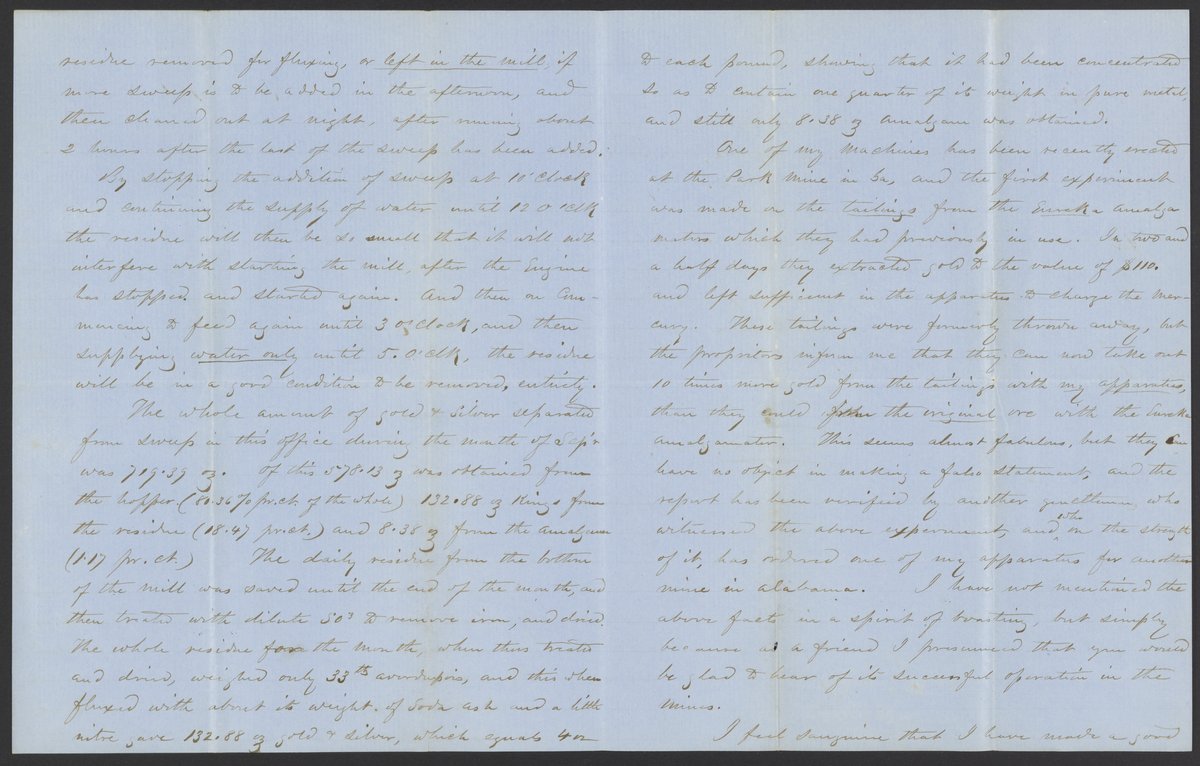 residue removed for fluxing, or left in the mill, if
more sweep is to be added in the afternoon, and
then cleaned out at night after running about
2 hours after the last of the sweep has been added.
By stopping the addition of sweep at 11 o'clock
and continuing the supply of water until 12 o'clk
the residue will then be so small that it will not
interfere with starting the mill, after the Engine
has stopped and started again. And then on Com-
mencing to feed again until 3 o'clock, and then
supplying water only until 5. o'clk, the residue
will be in a good condition to be removed, entirely.
The whole amount of gold & silver separated
from sweep in this office during the month of Sep'r
was 719.39 oz. Of this 578.13 oz was obtained from
the hopper (80.36 % pr.ct. of the whole) 132.88 oz Kings from
the residue (18.47 pr.ct.) and 8.38 oz from the amalgam
(1.17 pr.ct.) The daily residue from the bottom
of the mill was saved until the end of the month, and
then treated with dilute SO3 to remove iron, and dried.
The whole residue for the month, when thus treated
and dried, weighed only 33 lbs avordupois, and this when
fluxed with about its weight of Soda ash and a little
nitre gave 132.88 oz gold & silver, which equals 4 oz
to each pound, showing that it had been concentrated
so as to contain one quarter of its weight in pure metal,
and still only 8.38 oz Amalgam was obtained.
One of my machines has been recently erected
at the Park Mine in Ga, and the first experiment
was made on the tailings from the Eureka Amalga
mators which they had previously in use. In two and
a half days they extracted gold to the value of $110.
and left sufficient in the apparatus to charge the Mer-
cury. These tailings were formerly thrown away, but
the propritors inform me that they can now take out
10 times more gold from the tailings with my apparatus,
than they could from the original ore with the Eureka
amalgamator. This seems almost fabulous, but they can
have no object in making a false statement, and the
report has been verified by another gentleman, who
witnessed the above experiment, and who on the strength
of it, has ordered one of my apparatus for another
mine in Alabama. I have not mentioned the
above facts in a spirit of boasting, but simply
because as a friend I presumed that you would
be glad to hear of its successful operation in the
mines.
I feel sanguine that I have made a good